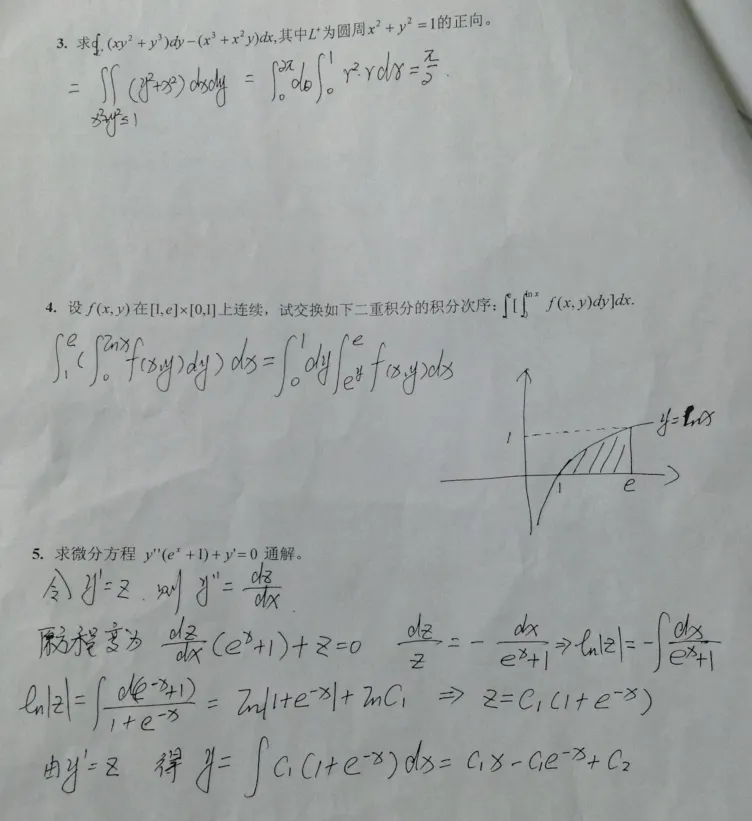 3. 求∮_{L⁺}(xy²+y³)dy−(x³+x²y)dx,其中L⁺为圆周x²+y²=1的正向。
= ∬_{x²+y²≤1} (y²+x²) dxdy = ∫₀^{2π} dθ ∫₀¹ r²·r dr = π/2.
4. 设 f(x,y) 在[1,e]×[0,1]上连续，试交换如下二重积分的积分次序：∫₁^e[∫₀^{ln x} f(x,y)dy]dx.
∫₁^e (∫₀^{lnx} f(x,y)dy) dx = ∫₀¹ dy ∫_{e^y}^e f(x,y)dx
y=lnx
1
1 e
5. 求微分方程 y''(eˣ+1)+y'=0 通解。
令 y'=z, 则 y''=dz/dx.
原方程变为 dz/dx (eˣ+1)+z=0 dz/z = − dx/(eˣ+1) ⇒ ln|z|=−∫dx/(eˣ+1)
ln|z|=∫d(e⁻ˣ+1)/(1+e⁻ˣ) = ln|1+e⁻ˣ|+lnC₁ ⇒ z=C₁(1+e⁻ˣ)
由y'=z 得 y=∫C₁(1+e⁻ˣ)dx=C₁x−C₁e⁻ˣ+C₂